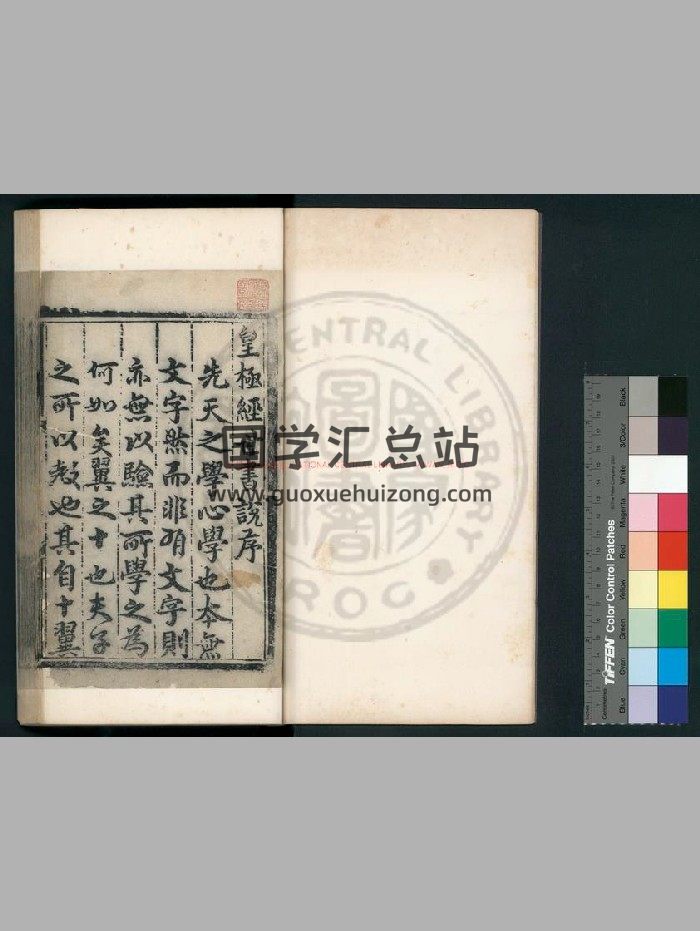 皇極經世書說序
先天之學心學也本無
文字然而非有文字則
亦無以驗其所學之為
何如矣翼之十也夫子
之所以教也其自十翼
国学汇总站
www.guoxuehuizong.com
CENTRAL LIBRARY
ROC
TIFFEN Color Control Patches
Blue
Cyan
Green
Yellow
Red
Magenta
White
3/Color
Black